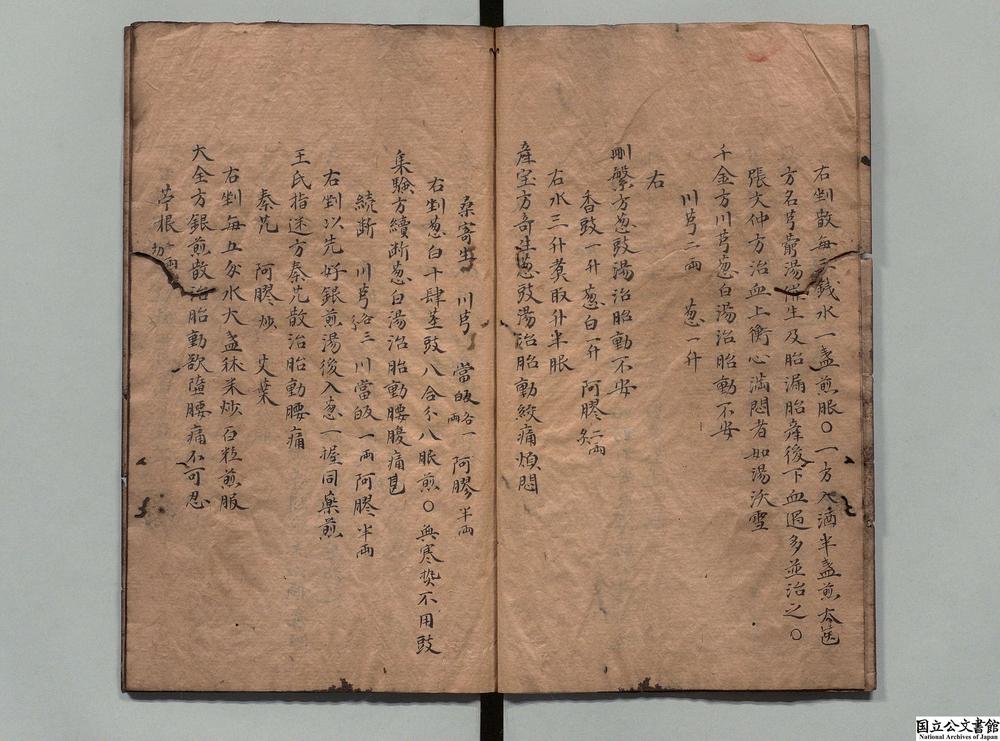 右剉散每三錢水一盞煎服〇一方入酒半盞煎
方名芎藭湯催生及胎漏胎產後下血過多並治之〇
張文仲方治血上衝心滿悶者如湯沃雪
千金方川芎葱白湯治胎動不安
川芎二兩　葱一升
右
刪繁方葱豉湯治胎動不安
香豉一升　葱白一升　阿膠二兩炙
右水三升煑取升半服
產宝方寄生葱豉湯治胎動絞痛煩悶
桑寄生　川芎　當皈各一兩　阿膠半兩
右剉葱白十肆莖豉八合分八服煎〇無寒熱不用豉
集驗方續断葱白湯治胎動腰腹痛
続断　川芎各三　川當皈一兩　阿膠半兩
右剉以先好銀煎湯後入葱一握同藥煎
王氏指迷方秦艽散治胎動腰痛
秦艽　阿膠炒　艾葉
右剉每五分水大盞秫米炒百粒煎服
大全方銀煎散治胎動欲墮腰痛不可忍
苧根二兩切
国立公文書館
National Archives of Japan